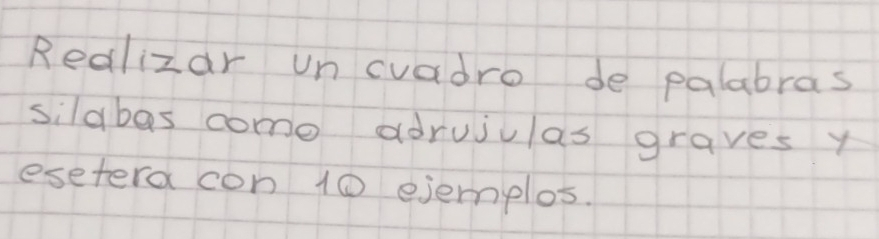 Realizar un cuadro de palabras
silabas como adrujulas graves y
esetera con 10 ejemplos.